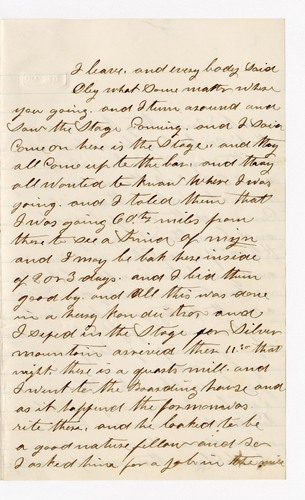 I leave. and every body Said
Oley what Some matter where
you going. and I turn around and
Saw the Stage Coming. and I Said
Come on here is the Stage. and they
all Come up to the bar. and thay
all Wanted to know Where I was
going. and I toled them that
I was going 60 ty miles from
there to see a frind of myn
and I may be bak here inside
of 2 or 3 days. and I bid them
good by. and all this was done
in a hery
I seped in the Stage for Silver
mountain arrived ther 11.30 that
night there is a quarts mill. and
I went to the Boarding house and
as it happund the formon was
rite there. and he looked to be
a good nature fellow and So
I asked hime for a job in the mill